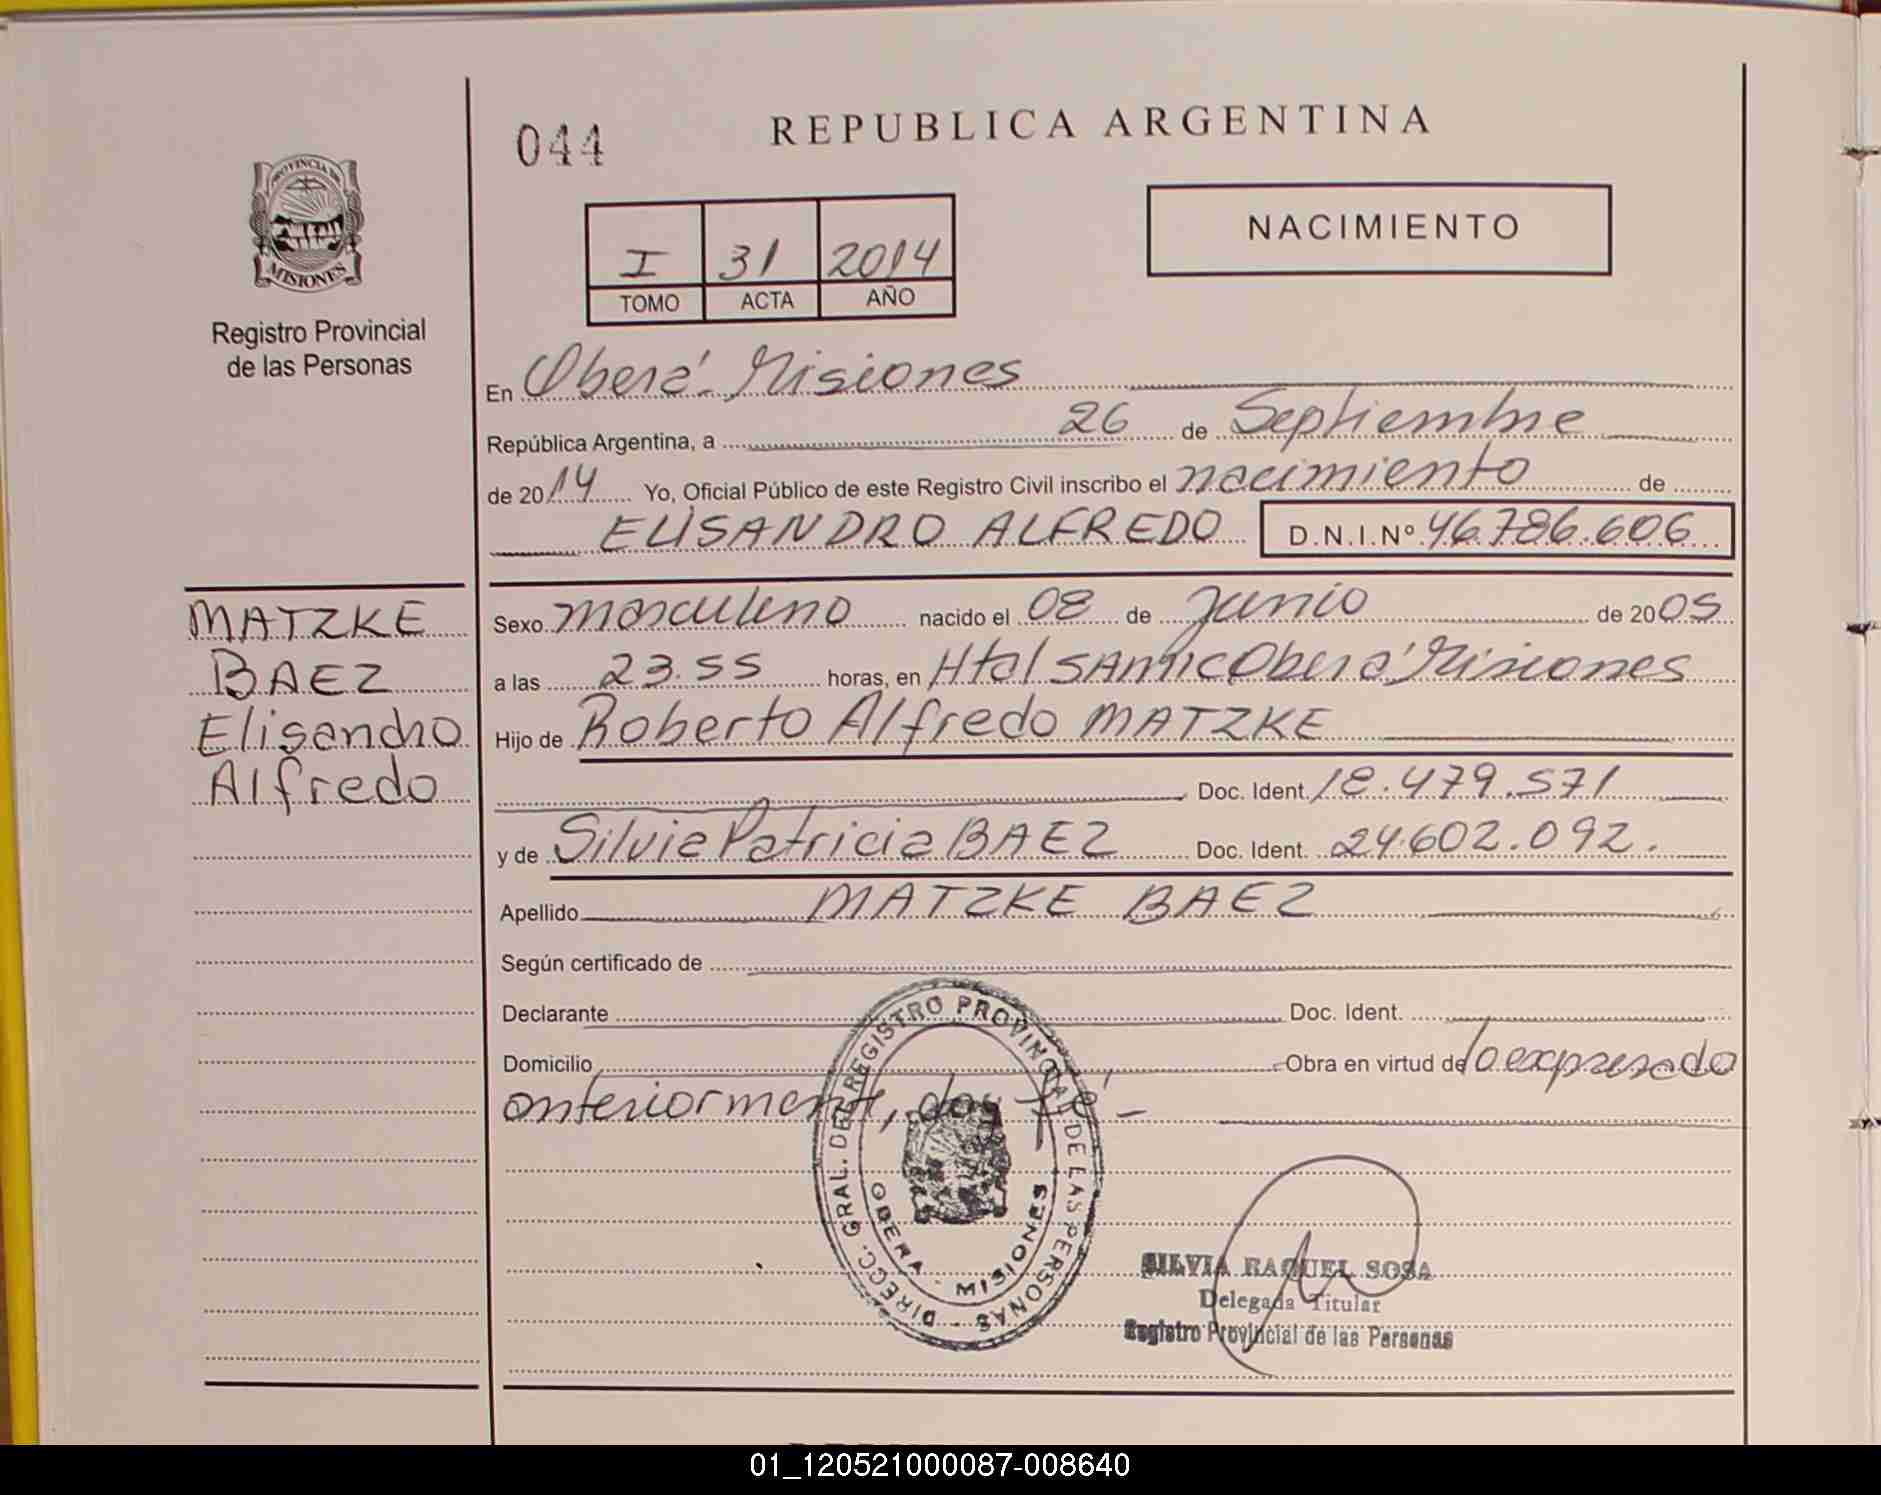 044
REPUBLICA ARGENTINA
PROVINCIA DE
MISIONES
Registro Provincial
de las Personas
I 31 2014
TOMO ACTA AÑO
NACIMIENTO
En Oberá - Misiones
República Argentina, a 26 de Septiembre
de 2014 Yo, Oficial Público de este Registro Civil inscribo el nacimiento de
ELISANDRO ALFREDO D.N.I.Nº 46.786.606
MATZKE
BAEZ
Elisandro
Alfredo
Sexo masculino nacido el 08 de Junio de 2005
a las 23.55 horas, en Htal SAMIC Oberá Misiones
Hijo de Roberto Alfredo MATZKE
Doc. Ident. 18.479.571
y de Silvia Patricia BAEZ Doc. Ident. 24.602.092.
Apellido MATZKE BAEZ
Según certificado de
Declarante Doc. Ident.
Domicilio Obra en virtud de lo expresado
anteriormente, doy fé -
DIRECC. GRAL. DEL REGISTRO PROVINCIAL DE LAS PERSONAS -
OBERA - MISIONES
SILVIA RAQUEL SOSA
Delegada Titular
Registro Provincial de las Personas
01_120521000087-008640